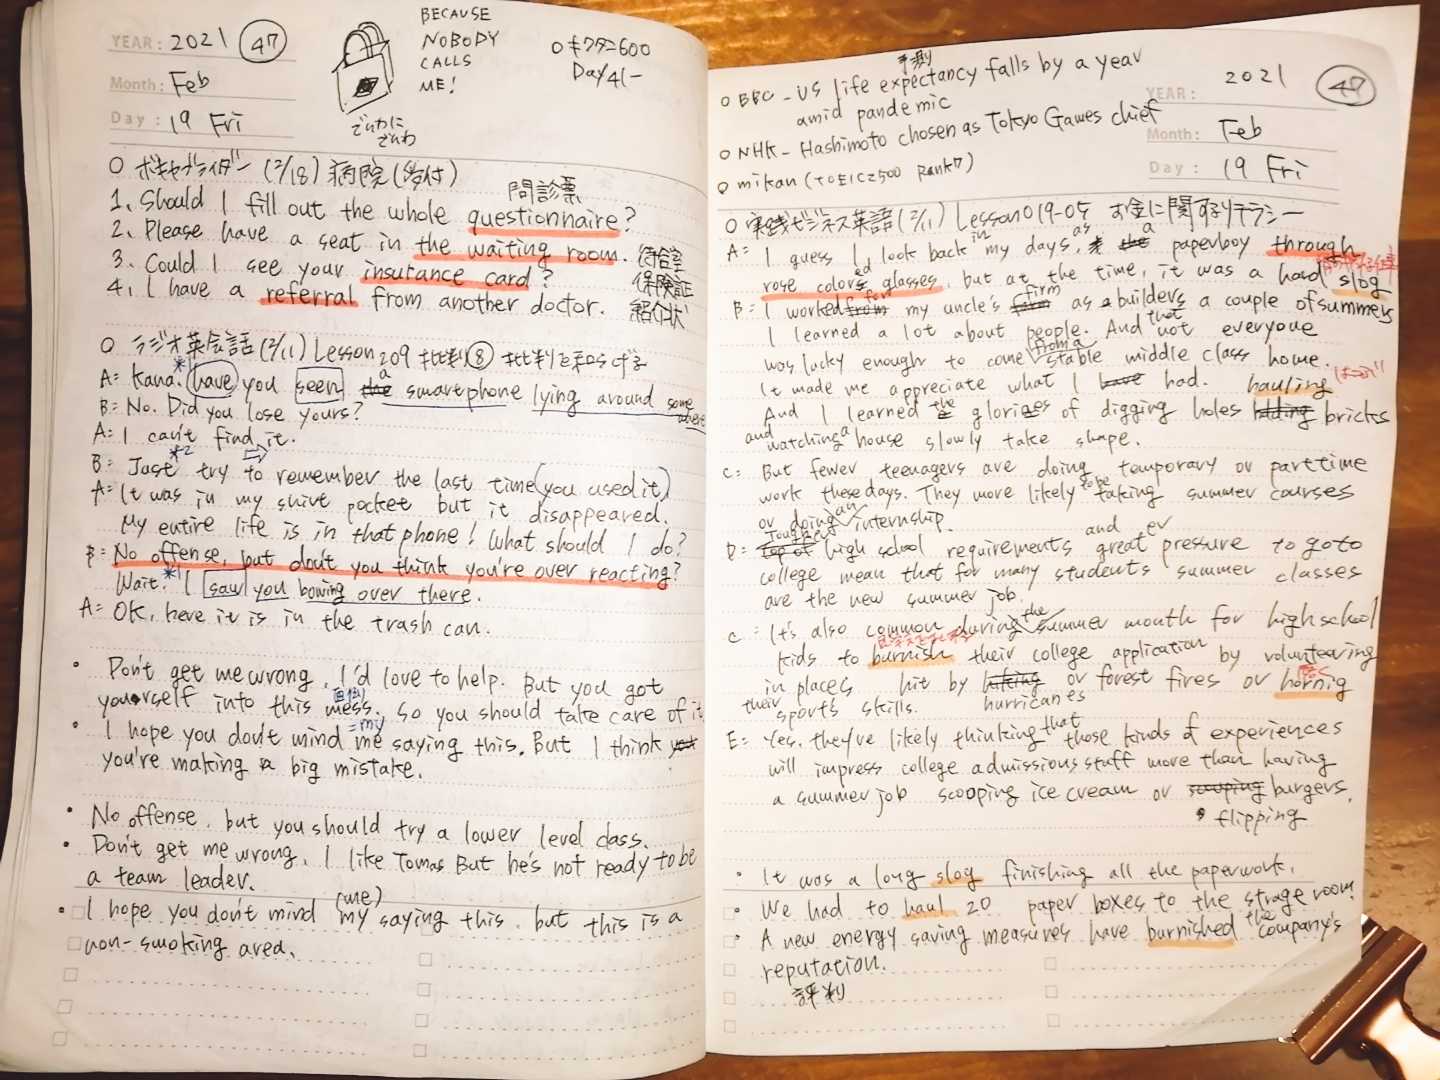 YEAR: 2021 47
Month: Feb
Day: 19 Fri
BECAUSE
NOBODY
CALLS
ME!
でんわに
でんわ
○キクタン600
Day41-
○ボキャブライダー (2/18) 病院(受付)
問診票
1. Should I fill out the whole questionnaire?
2. Please have a seat in the waiting room. 待合室
3. Could I see your insurance card? 保険証
4. I have a referral from another doctor. 紹介状
○ラジオ英会話 (2/11) Lesson 209 批判⑧ 批判を和らげる
A: Kana. have you seen the a smartphone lying around somewhere
B: No. Did you lose yours?
A: I can't find it.
B: Just try to remember the last time (you used it)
A: It was in my shirt pocket but it disappeared.
My entire life is in that phone! What should I do?
B: No offense, but don't you think you're over reacting?
Wait. *1 I saw you bowing over there.
A: OK, here it is in the trash can.
・Don't get me wrong, I'd love to help. But you got
yourself into this mess. So you should take care of it
・I hope you don't mind me saying this. But I think
=my
you're making a big mistake.
・No offense, but you should try a lower level class.
・Don't get me wrong, I like Tomas But he's not ready to be
a team leader.
(me)
・I hope you don't mind my saying this, but this is a
non-smoking area.
予測
○ BBC - US life expectancy falls by a year
amid pandemic
○ NHK - Hashimoto chosen as Tokyo Games chief
○ mikan (TOEIC2500 Rank7)
YEAR: 2021 47
Month: Feb
Day: 19 Fri
○実践ビジネス英語 (2/11) Lesson019-05 お金に関するリテラシー
A: I guess I look back in my days as the a paperboy through
rose colored glasses, but at the time, it was a hard slog
B: I worked from for my uncle's farm firm as a builders a couple of summers
I learned a lot about people. And that not everyone
was lucky enough to come from a stable middle class home.
It made me appreciate what I have had. hauling
And I learned the glories of digging holes hiding bricks
and watching a house slowly take shape.
C: But fewer teenagers are doing temporary or part time
work these days. They more likely to be taking summer courses
or doing an internship.
D: Tougher top of high school requirements and greater pressure to go to
college mean that for many students summer classes
are the new summer job.
C: It's also common during the summer month for high school
kids to burnish their college application by volunteering
in places hit by hiking or forest fires or hornig
their sports skills. hurricanes
E: Yes. they've likely thinking that those kinds of experiences
will impress college admissions staff more than having
a summer job scooping ice cream or scouping burgers.
・flipping
・It was a long slog finishing all the paperwork.
・We had to haul 20 paper boxes to the strage room.
・A new energy saving measures have burnished the company's
reputation.
評判